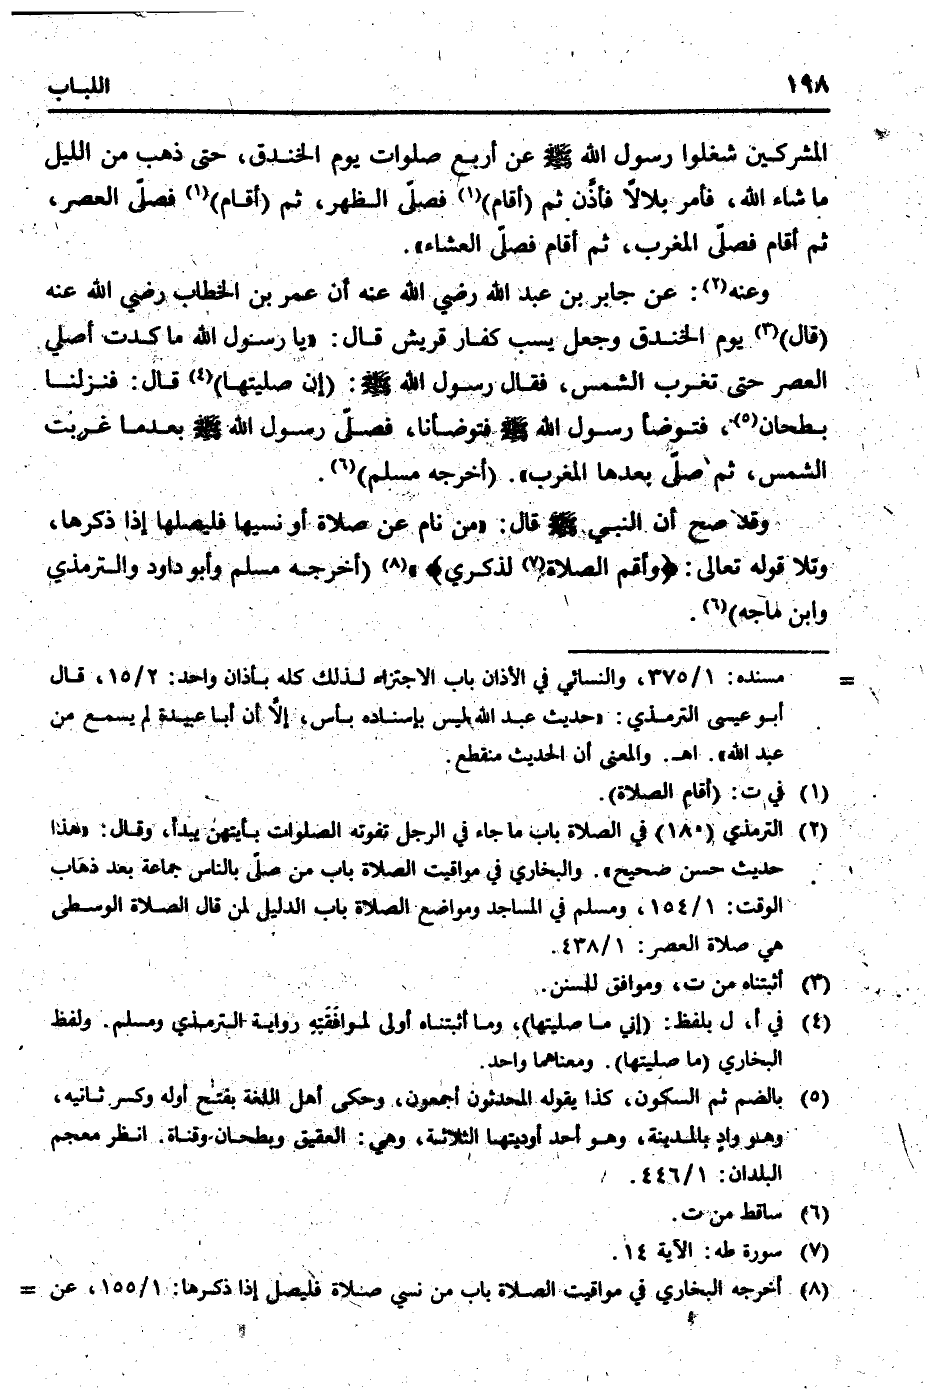 ١٩٨ اللباب
المشركين شغلوا رسول الله ﷺ عن أربع صلوات يوم الخندق، حتى ذهب من الليل
ما شاء الله، فأمر بلالاً فأذَّن ثم (أقام)(١) فصلّى الظهر، ثم (أقام)(١) فصلّى العصر،
ثم أقام فصلّى المغرب، ثم أقام فصلّى العشاء».
وعنه(٢): عن جابر بن عبد الله رضي الله عنه أن عمر بن الخطاب رضي الله عنه
(قال)(٣) يوم الخندق وجعل يسب كفار قريش قال: «يا رسول الله ما كدت أصلي
العصر حتى تغرب الشمس، فقال رسول الله ﷺ: (إن صليتها)(٤) قال: فنزلنا
بطحان(٥)، فتوضأ رسول الله ﷺ فتوضأنا، فصلّى رسول الله ﷺ بعدما غربت
الشمس، ثم صلّى بعدها المغرب». (أخرجه مسلم)(٦).
وقد صح أن النبي ﷺ قال: «من نام عن صلاة أو نسيها فليصلها إذا ذكرها،
وتلا قوله تعالى: ﴿وأقم الصلاة(٧) لذكري﴾»(٨) (أخرجه مسلم وأبو داود والترمذي
وابن ماجه)(٦).
= مسنده: ١/٣٧٥، والنسائي في الأذان باب الاجتزاء لذلك كله بأذان واحد: ٢/١٥، قال
أبو عيسى الترمذي: «حديث عبد الله ليس بإسناده بأس، إلَّا أن أبا عبيدة لم يسمع من
عبد الله». اهـ. والمعنى أن الحديث منقطع.
(١) في ت: (أقام الصلاة).
(٢) الترمذي (١٨٠) في الصلاة باب ما جاء في الرجل تفوته الصلوات بأيتهن يبدأ، وقال: «هذا
حديث حسن صحيح». والبخاري في مواقيت الصلاة باب من صلّى بالناس جماعة بعد ذهاب
الوقت: ١/١٥٤، ومسلم في المساجد ومواضع الصلاة باب الدليل لمن قال الصلاة الوسطى
هي صلاة العصر: ١/٤٣٨.
(٣) أثبتناه من ت، وموافق للسنن.
(٤) في أ، ل بلفظ: (إني ما صليتها)، وما أثبتناه أولى لموافَقَتِهِ رواية الترمذي ومسلم. ولفظ
البخاري (ما صليتها). ومعناهما واحد.
(٥) بالضم ثم السكون، كذا يقوله المحدثون أجمعون، وحكى أهل اللغة بفتح أوله وكسر ثانيه،
وهو وادٍ بالمدينة، وهو أحد أوديتها الثلاثة، وهي: العقيق وبطحان وقناة. انظر معجم
البلدان: ١/٤٤٦.
(٦) ساقط من ت.
(٧) سورة طه: الآية ١٤.
(٨) أخرجه البخاري في مواقيت الصلاة باب من نسي صلاة فليصل إذا ذكرها: ١/١٥٥، عن =